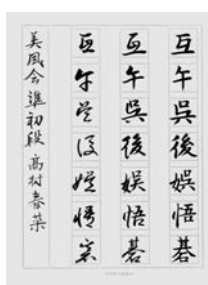 互午呉後娯悟碁
互午呉後娯悟碁
互午呉後娯悟碁
美風会 進初段 高村